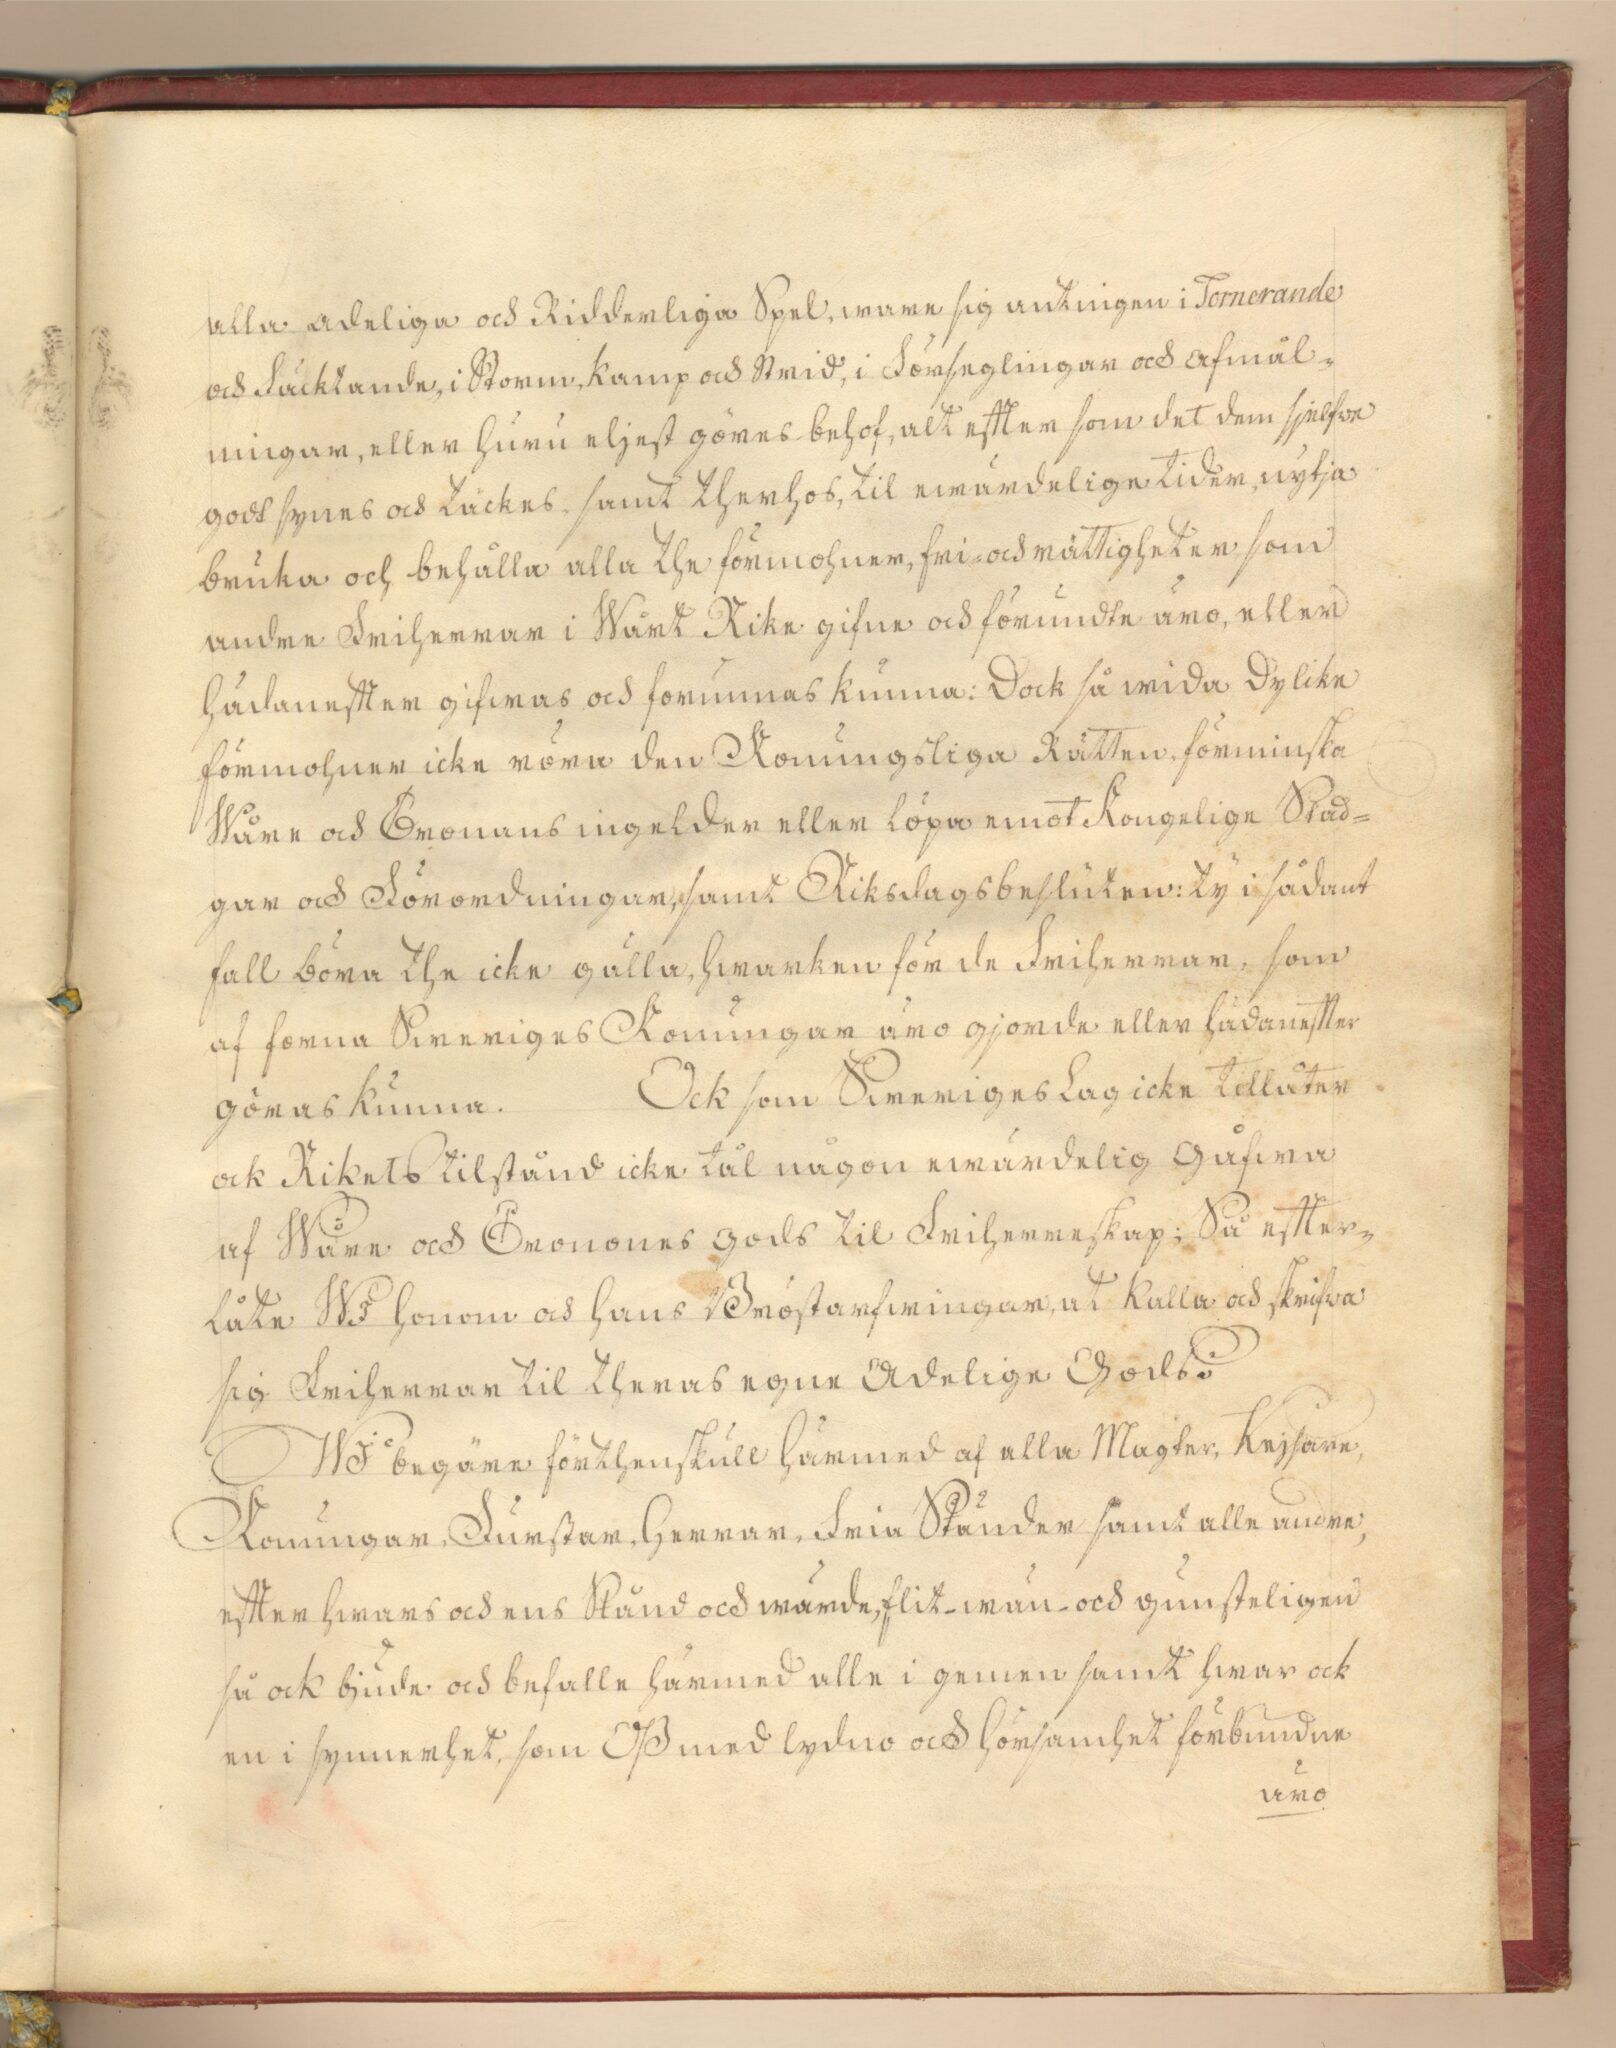 alla adeliga och Ridderliga Spel, ware sig antingen i Tornerande
och Fäcktande, i Storm, Kamp och Strid, i Förseglingar och Afmål-
ningar, eller huru eljest göres behof, alt effter som det dem sjelfwe
godt synes och täckes, samt therhos, til ewärdelige tider, nytja
bruka och behålla alla the förmohner, fri- och rättigheter som
andre Friherrar i Wårt Rike gifne och förundte äro, eller
hädaneffter gifwas och forunnas kunna: Dock så wida dylike
förmohner icke röra den Konungsliga Rätten, förminska
Wåre och Cronans ingelder eller löpa emot Kongelige Stad-
gar och Förordningar, samt Riksdagsbesluten: ty i sådant
fall böra the icke gälla, hwarken för de Friherrar, som
af forna Sweriges Konungar äro gjorde eller hädaneffter
göras kunna. Ock som Sweriges Lag icke tillåter
ock Rikets tilstånd icke tål någon ewärdelig gåfwa
af Wåre och Cronones gods til Friherreskap; Så effter-
låte Wi honom och hans Bröstarfwingar, at kalla och skrifwa
sig Friherrar til theras egne Adelige Gods.
Wi begäre förthenskull härmed af alla Magter, Kejsare,
Konungar, Furstar, Herrar, Fria Ständer samt alle andre,
effter hwars och ens Stånd och wärde, flit- wän- och gunsteligen
så ock bjude och befalle härmed alle i gemen samt hwar ock
en i synnerhet, som Oß med lydno och hörsamhet förbundne
äro